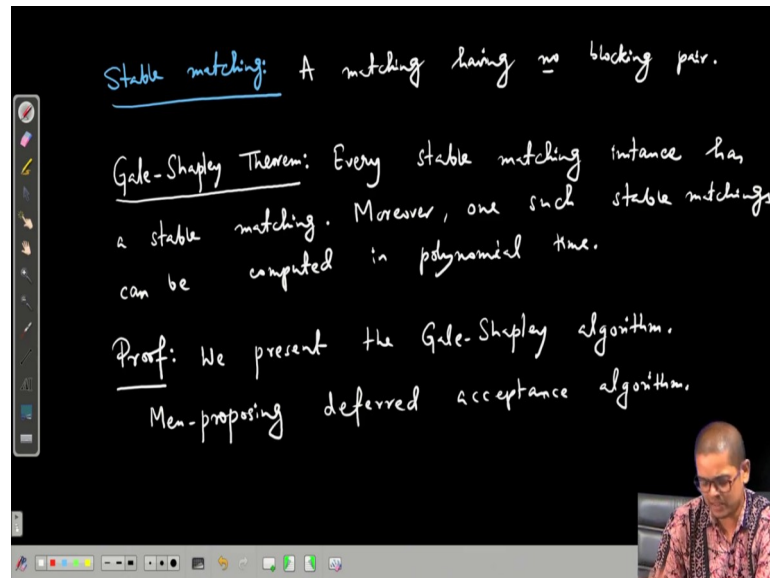 Stable matching: A matching having no blocking pair.
Gale-Shapley Theorem: Every stable matching instance has
a stable matching. Moreover, one such stable matchings
can be computed in polynomial time.
Proof: We present the Gale-Shapley algorithm.
Men-proposing deferred acceptance algorithm.